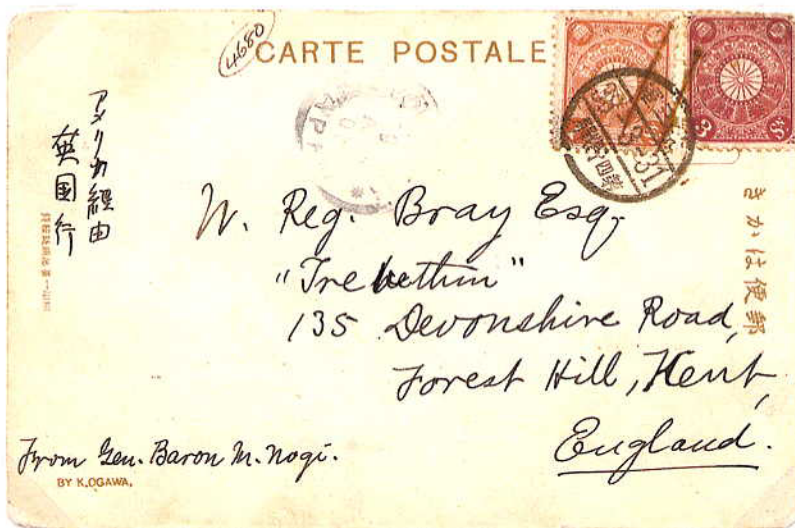 4680
CARTE POSTALE
3 Sn.
アメリカ經由
英国行
W. Reg. Bray Esq.
"Trebethin"
135 Devonshire Road,
Forest Hill, Kent,
England.
きかは便郵
From Gen. Baron M. Nogi.
BY K.OGAWA.